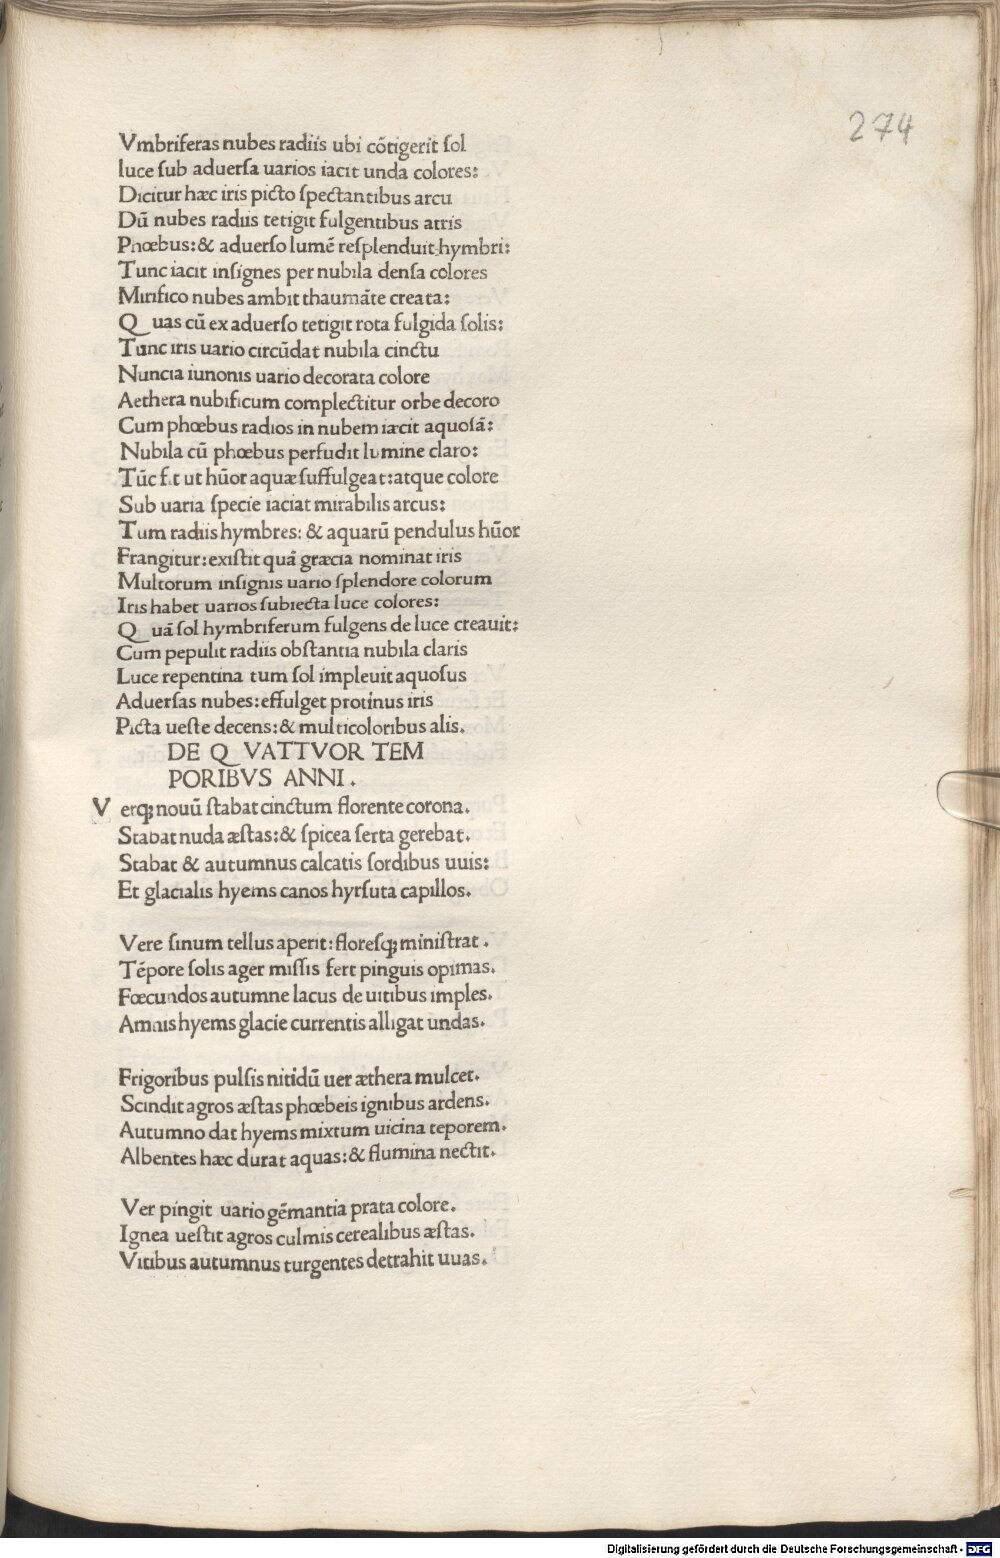 274
Vmbriferas nubes radiis ubi cõtigerit ſol
luce ſub aduerſa uarios iacit unda colores:
Dicitur hæc iris picto ſpectantibus arcu
Dũ nubes radiis tetigit fulgentibus atris
Phœbus:& aduerſo lumẽ reſplenduit hymbri:
Tunc iacit inſignes per nubila denſa colores
Mirifico nubes ambit thaumãte creata:
Quas cũ ex aduerſo tetigit rota fulgida ſolis:
Tunc iris uario circũdat nubila cinctu
Nuncia iunonis uario decorata colore
Aethera nubificum complectitur orbe decoro
Cum phœbus radios in nubem iæcit aquoſã:
Nubila cũ phœbus perfudit lumine claro:
Tũc fit ut hũor aquæ ſuffulgeat:atque colore
Sub uaria ſpecie iaciat mirabilis arcus:
Tum radiis hymbres: & aquarũ pendulus hũor
Frangitur:exiſtit quã græcia nominat iris
Multorum inſignis uario ſplendore colorum
Iris habet uarios ſubiecta luce colores:
Quã ſol hymbriferum fulgens de luce creauit:
Cum pepulit radiis obſtantia nubila claris
Luce repentina tum ſol impleuit aquoſus
Aduerſas nubes:effulget protinus iris
Picta ueſte decens:& multicoloribus alis.
DE QVATTVOR TEM
PORIBVS ANNI.
V erqꝫ nouũ ſtabat cinctum florente corona.
Stabat nuda æſtas:& ſpicea ſerta gerebat.
Stabat & autumnus calcatis ſordibus uuis:
Et glacialis hyems canos hyrſuta capillos.

Vere ſinum tellus aperit:floreſqꝫ miniſtrat.
Tẽpore ſolis ager miſſis fert pinguis opimas.
Fœcundos autumne lacus de uitibus imples.
Amnis hyems glacie currentis alligat undas.

Frigoribus pulſis nitidũ uer æthera mulcet.
Scindit agros æſtas phœbeis ignibus ardens.
Autumno dat hyems mixtum uicina teporem.
Albentes hæc durat aquas:& flumina nectit.

Ver pingit uario gẽmantia prata colore.
Ignea ueſtit agros culmis cerealibus æſtas.
Vitibus autumnus turgentes detrahit uuas.
Digitalisierung gefördert durch die Deutsche Forschungsgemeinschaft - DFG